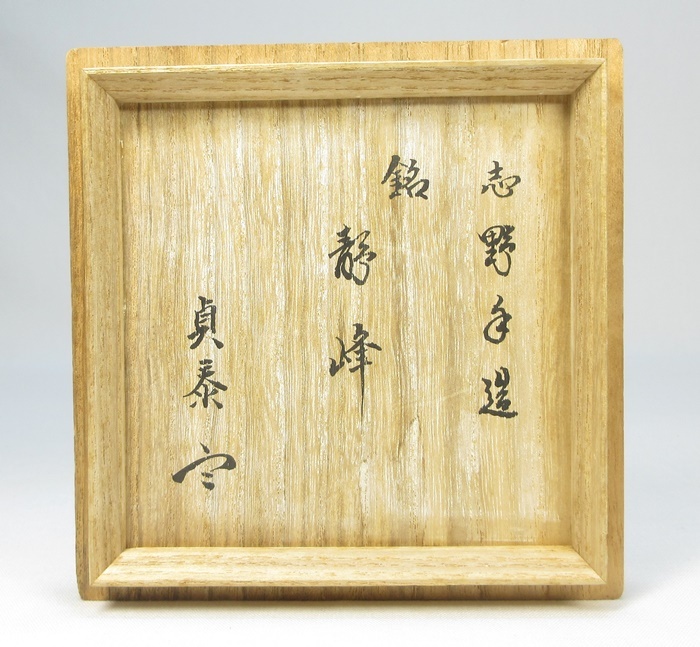 志野手造
銘
静峰
貞泰